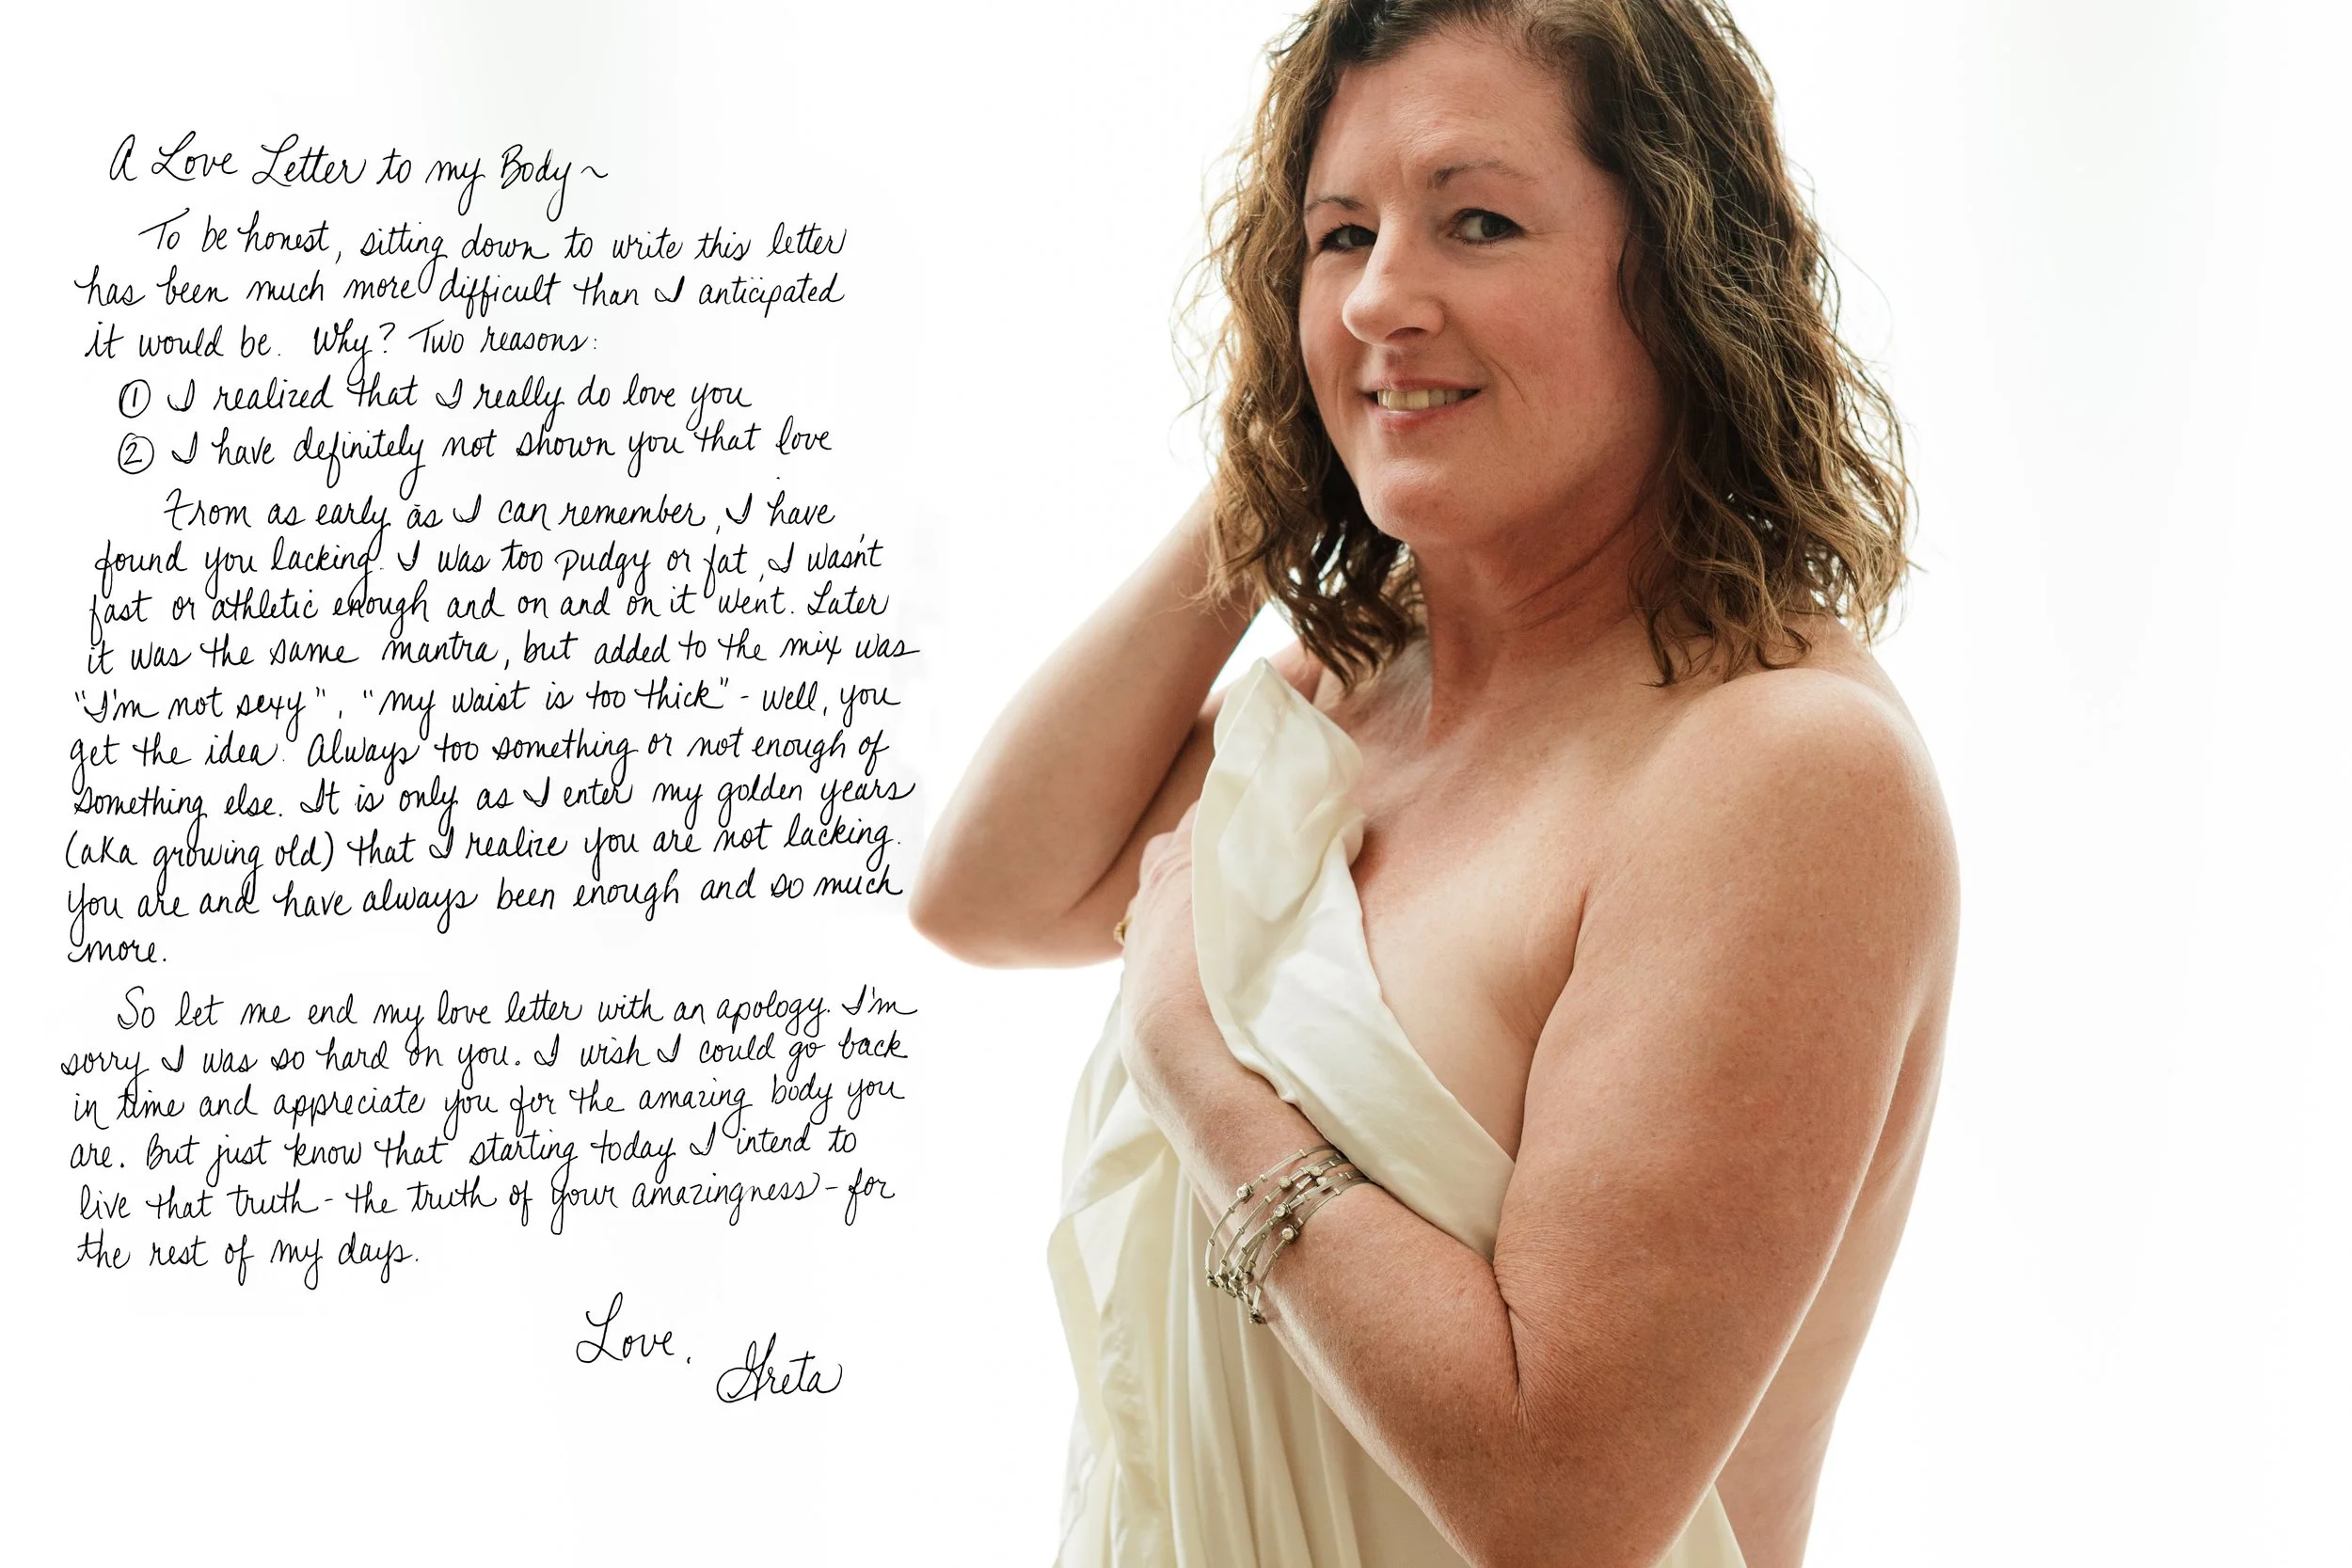 A Love Letter to my Body ~
To be honest, sitting down to write this letter
has been much more difficult than I anticipated
it would be. Why? Two reasons:
① I realized that I really do love you
② I have definitely not shown you that love
From as early as I can remember, I have
found you lacking. I was too pudgy or fat, I wasn't
fast or athletic enough and on and on it went. Later
it was the same mantra, but added to the mix was
"I'm not sexy", "my waist is too thick" - well, you
get the idea. Always too something or not enough of
something else. It is only as I enter my golden years
(aka growing old) that I realize you are not lacking.
You are and have always been enough and so much
more.
So let me end my love letter with an apology. I'm
sorry I was so hard on you. I wish I could go back
in time and appreciate you for the amazing body you
are. But just know that starting today I intend to
live that truth - the truth of your amazingness - for
the rest of my days.
Love,
Greta